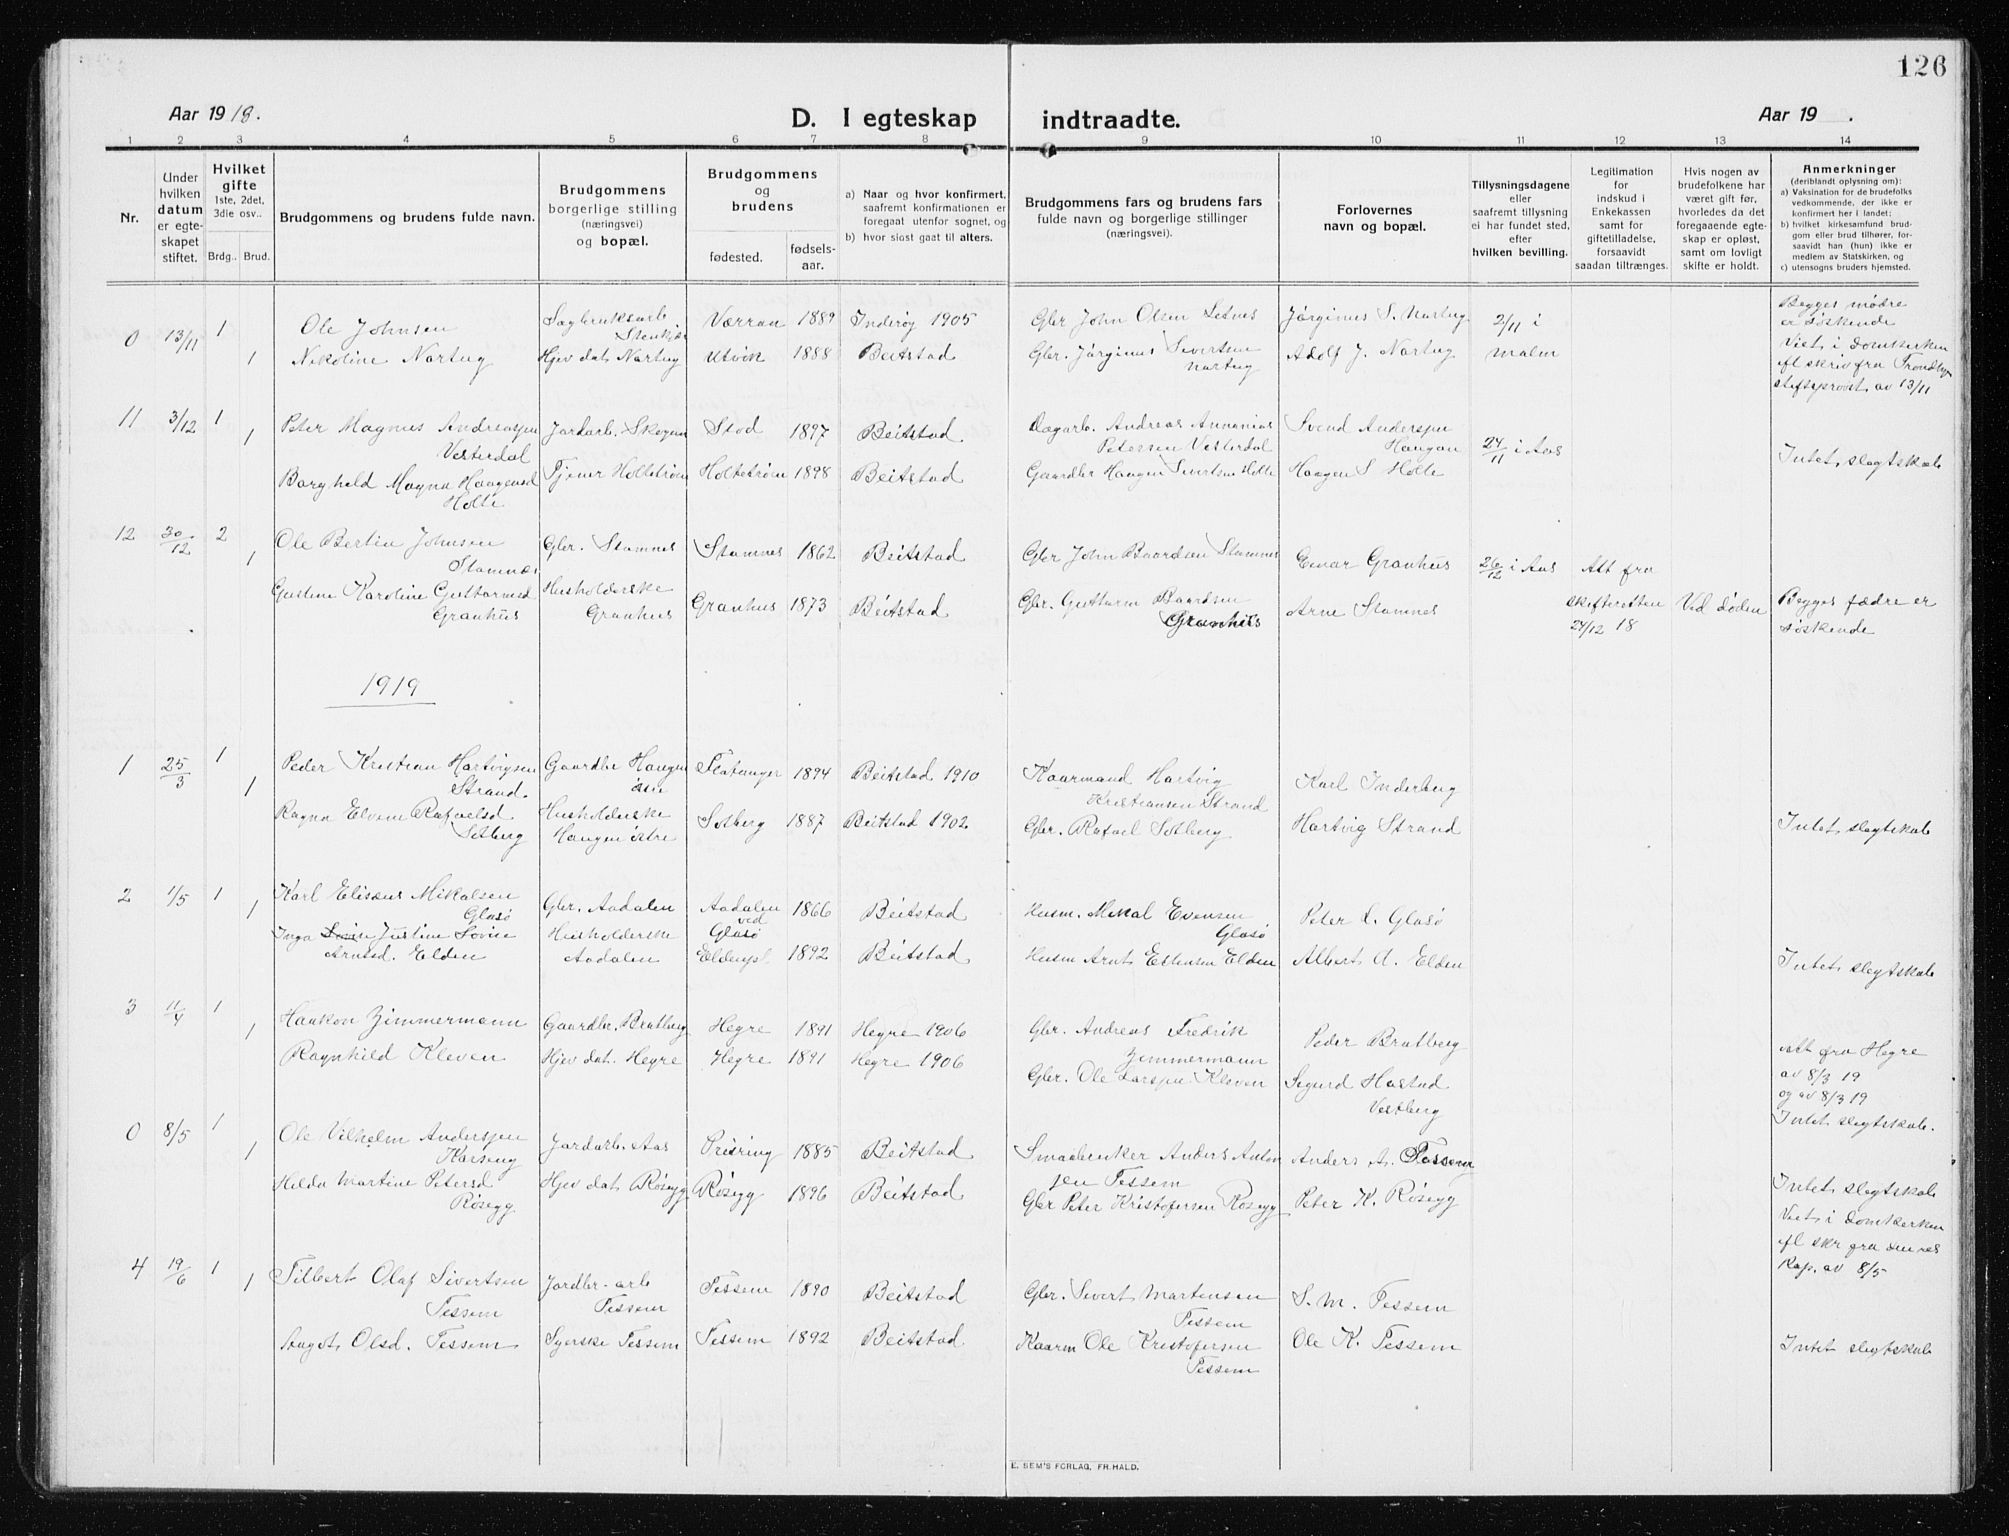 126
Aar 1918.
D. I egteskap indtraadte.
Aar 19 .
1 2 3 4 5 6 7 8 9 10 11 12 13 14
Nr.
Under hvilken datum er egte-skapet stiftet.
Hvilket gifte
1ste, 2det, 3die osv..
Brdg.. Brud.
Brudgommens og brudens fulde navn.
Brudgommens borgerlige stilling (næringsvei) og bopæl.
Brudgommens og brudens
fødested.
fødsels-aar.
a) Naar og hvor konfirmert, saafremt konfirmationen er foregaat utenfor sognet, og
b) hvor sidst gaat til alters.
Brudgommens fars og brudens fars fulde navn og borgerlige stillinger (næringsvei).
Forlovernes navn og bopæl.
Tillysningsdagene eller saafremt tillysning ei har fundet sted, efter hvilken bevilling.
Legitimation for indskud i Enkekassen samt for giftetilladelse, forsaavidt saadan tiltrænges.
Hvis nogen av brudefolkene har været gift før, hvorledes da det foregaaende egte-skap er opløst, samt om lovligt skifte er holdt.
Anmerkninger
(deriblandt oplysning om):
a) Vaksination for de brudefolks vedkommende, der ikke er konfirmert her i landet;
b) hvilket kirkesamfund brud-gom eller brud tilhører, for-saavidt han (hun) ikke er medlem av Statskirken, og
c) utensogns bruders hjemsted.
0 13/11 1 Ole Johnsen Sagbruksarb Stenkjær Værran 1889 Inderøy 1905 Gbr John Olsen Letnes Jørginus S. Nartug 2/11 i Malm
1 Nikoline Nartug Hjev dat Nartug Utvik 1888 Beitstad Gbr. Jørginus Sivertsen Nartug Adolf J. Nartug
Begges mødre
er søskende
Viet i Domkirken
efl skriv fra Trondhj
stiftsprovst av 13/11
11 3/12 1 Peter Magnus Andreasen Vesterdal Jordarb. Skogan Stod 1897 Beitstad Dagarb. Andreas Annanias Petersen Vesterdal Svend Andersen Haugan 24/11 i Aas
1 Borghild Magna Haagensd Holte Tjener Holtetrøen Holtetrøen 1898 Beitstad Gaardbr Haagen Sivertsen Holte Haagen S Holte Intet slegtskab
12 30/12 2 Ole Bertin Johnsen Stamnes Gbr. Stamnes Stamnes 1862 Beitstad Gbr John Baardsen Stamnes Einar Granhus 26/12 i Aas Att fra
1 Gustine Karoline Guttormsd Granhus Husholderske Granhus Granhus 1873 Beitstad Gbr. Guttorm Baardsen Granhus Arne Stamnes skifteretten 24/12 18 Ved døden Begges fædre er søskende
1919
1 25/3 1 Peder Kristian Hartvigsen Strand. Gaardbr Haugen Flatanger 1894 Beitstad 1910 Kaarmand Hartvig Kristiansen Strand Karl Inderberg
1 Ragna Elvine Rafaelsd Solberg Husholderske Haugen østre Solberg 1887 Beitstad 1902 Gbr. Rafael Solberg Hartvig Strand Intet slegtskab
2 1/5 1 Karl Eliseus Mikalsen Glasø Gbr. Aadalen Aadalen ved Glasø 1866 Beitstad Husm. Mikal Evensen Glasø Peter L. Glasø
1 Inga Justine Lovise Arntsd. Elden Husholderske Aadalen Eldenpl 1892 Beitstad Husm Arnt Estensen Elden Albert A. Elden Intet slegtskab
3 11/4 1 Haakon Zimmermann Gaardbr. Bratberg Hegre 1891 Hegre 1906 Gbr. Andreas Fredrik Zimmermann Peder Bratberg
1 Ragnhild Kleven Hjev dat. Hegre Hegre 1891 Hegre 1906 Gbr. Ole Larsen Kleven Sigurd Hastad Vestberg
Att fra Hegre
av 8/3 19
og av 8/3 19
Intet slegtskab.
0 8/5 1 Ole Vilhelm Andersen Jordarb. Aas 1885 Beitstad Smaabruker Anders Anton sen Tessem Anders A. Tessem
1 Hilda Martine Petersd Røsegg Hjev dat Røsegg Røsegg 1896 Beitstad Gbr Peter Kristofersen Røsegg Peter K. Røsegg
Intet slegtskab
Viet i Domkirken
efl skr fra
Kap. av 8/5
4 19/6 1 Tilbert Olaf Sivertsen Tessem Jordbr-arb Tessem Tessem 1890 Beitstad Gbr. Sivert Martensen Tessem S. M. Tessem
1 Aagot Olsd. Tessem Syerske Tessem Tessem 1892 Beitstad Kaarm Ole Kristofersen Tessem Ole K. Tessem Intet slegtskab
E. SEM'S FORLAG, FR.HALD.